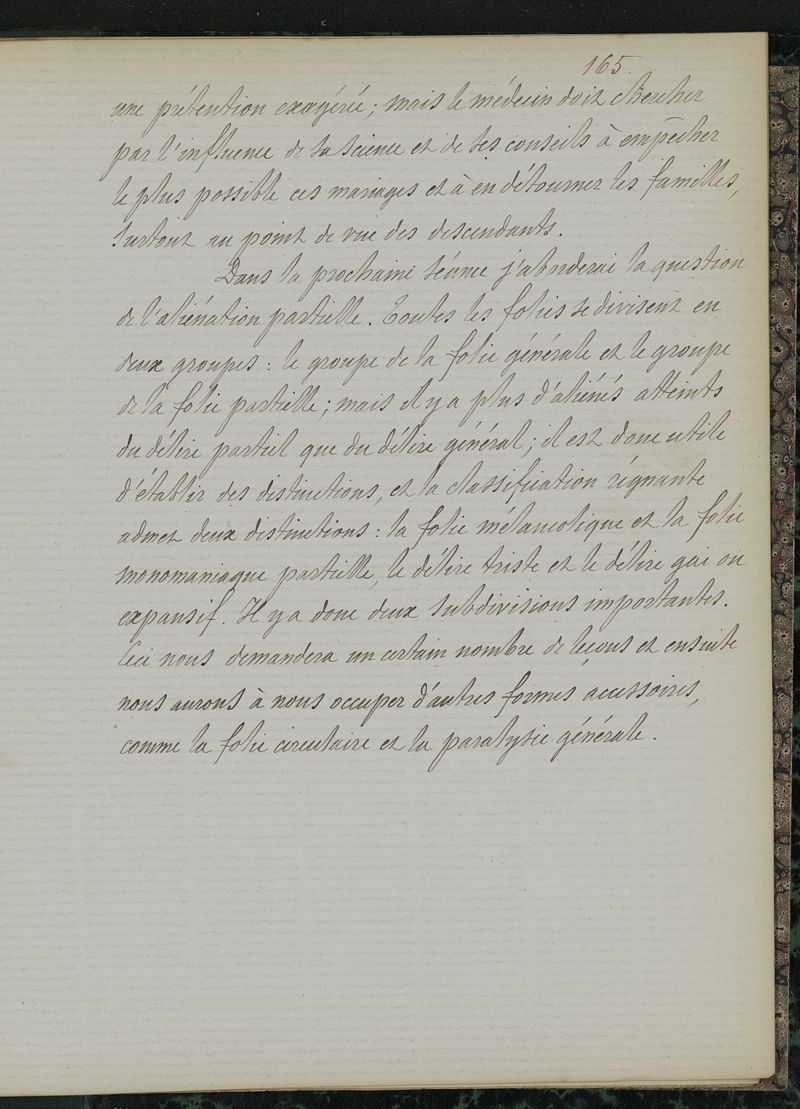 165.
une prétention exagérée ; mais le médecin doit chercher
par l'influence de sa science et de ses conseils à empêcher
le plus possible ces mariages et à en détourner les familles,
surtout au point de vue des descendants.
Dans la prochaine séance j'aborderai la question
de l'aliénation partielle. Toutes les folies se divisent en
deux groupes : le groupe de la folie générale et le groupe
de la folie partielle ; mais il y a plus d'aliénés atteints
du délire partiel que du délire général ; il est donc utile
d'établir des distinctions, et la classification régnante
admet deux distinctions : la folie mélancolique et la folie
monomaniaque partielle, le délire triste et le délire gai ou
expansif. Il y a donc deux subdivisions importantes.
Ceci nous demandera un certain nombre de leçons et ensuite
nous aurons à nous occuper d'autres formes accessoires,
comme la folie circulaire et la paralysie générale.